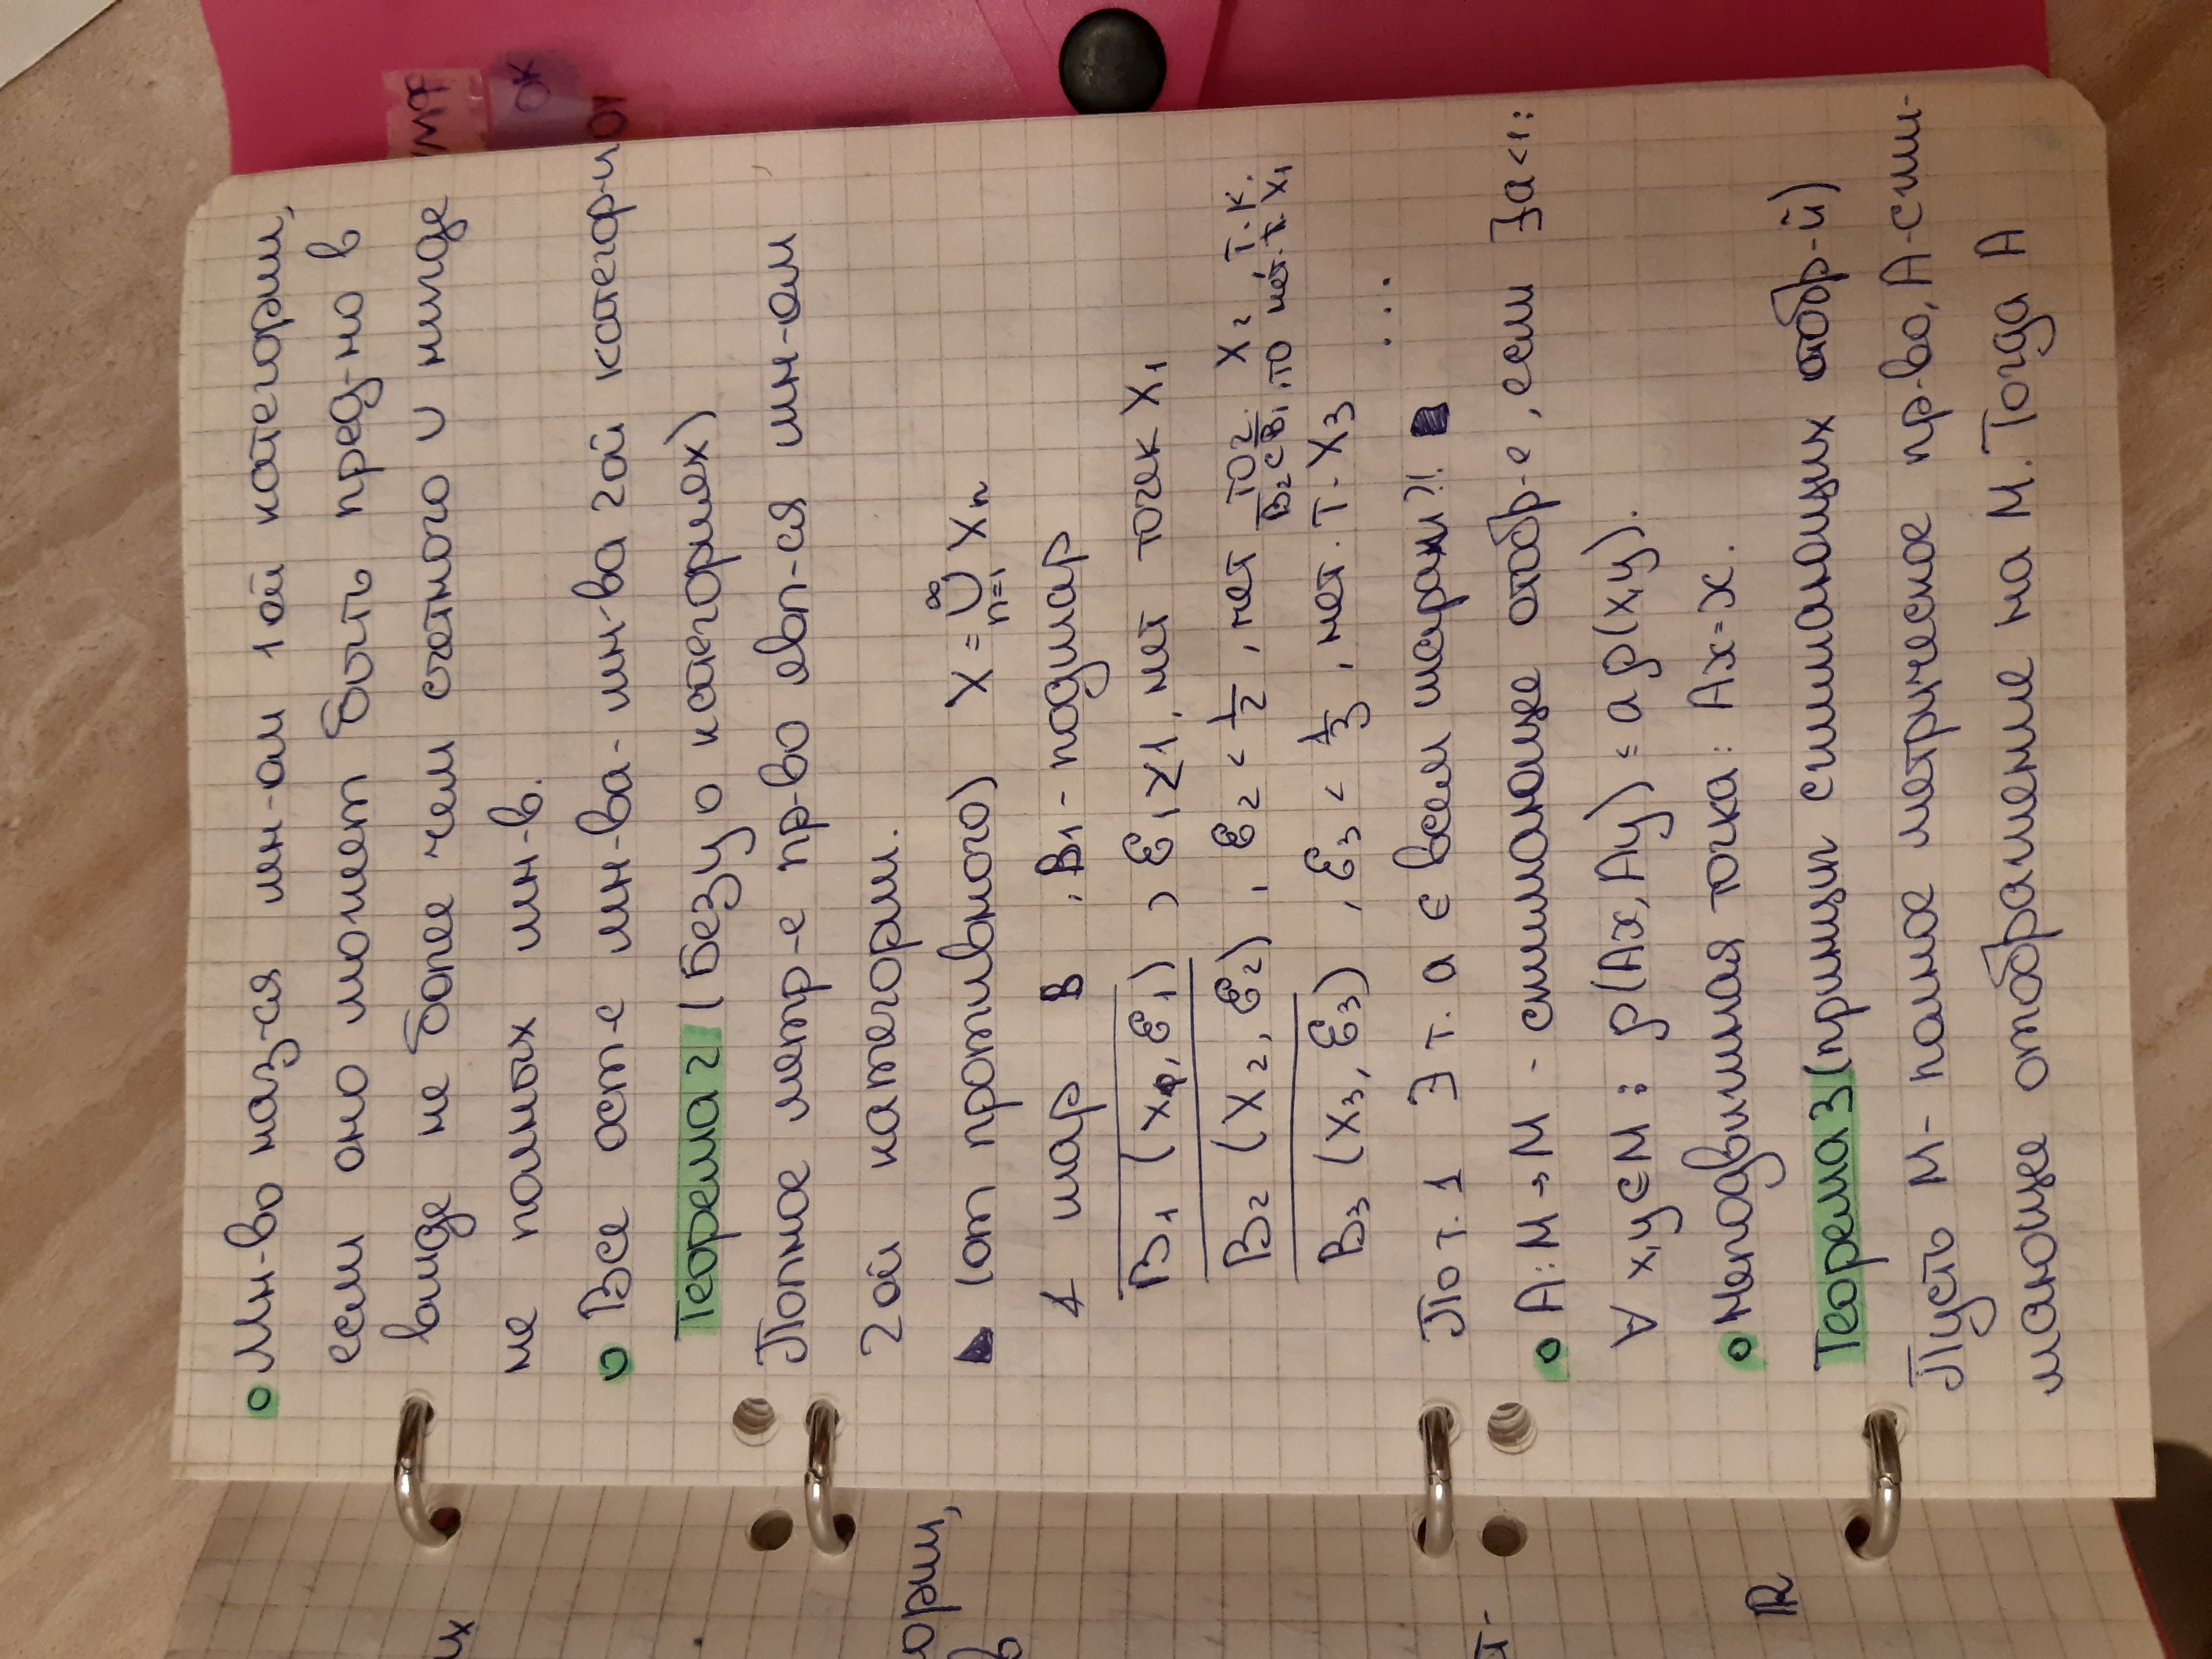 Мн-во наз-ся мн-ом 1ой категории,
если оно может быть пред-но в
виде не более чем счетного ∪ нигде
не полных мн-в.
Все ост-е мн-ва - мн-ва 2ой категори
Теорема 2 (Безу о категориях)
Полное метр-е пр-во явл-ся мн-ом
2ой категории.
(от противного) X = ∞∪n=1 Xn
1 шар B , B1 - подшар
B1 (x1, ε1) , ε1 ≥ 1, нет точек X1
B2 (x2, ε2) , ε2 < 1/2 , нет то2. X2 т.к. B2⊂B1, то нет т. X1
B3 (x3, ε3) , ε3 < 1/3 , нет. т. X3 ...
По т. 1 ∃ т. a ∈ всем шарам?!
A: M → M - сжимающее отобр-е, если ∃a<1:
∀ x,y ∈ M : ρ(Ax, Ay) = a ρ(x,y).
Неподвижная точка: Ax=x.
Теорема 3 (принцип сжимающих отобр-й)
Пусть M - полное метрическое пр-во, A - сжи-
мающее отображение на M. Тогда A
УМФ
ОК
их
ории,
в
т-
R